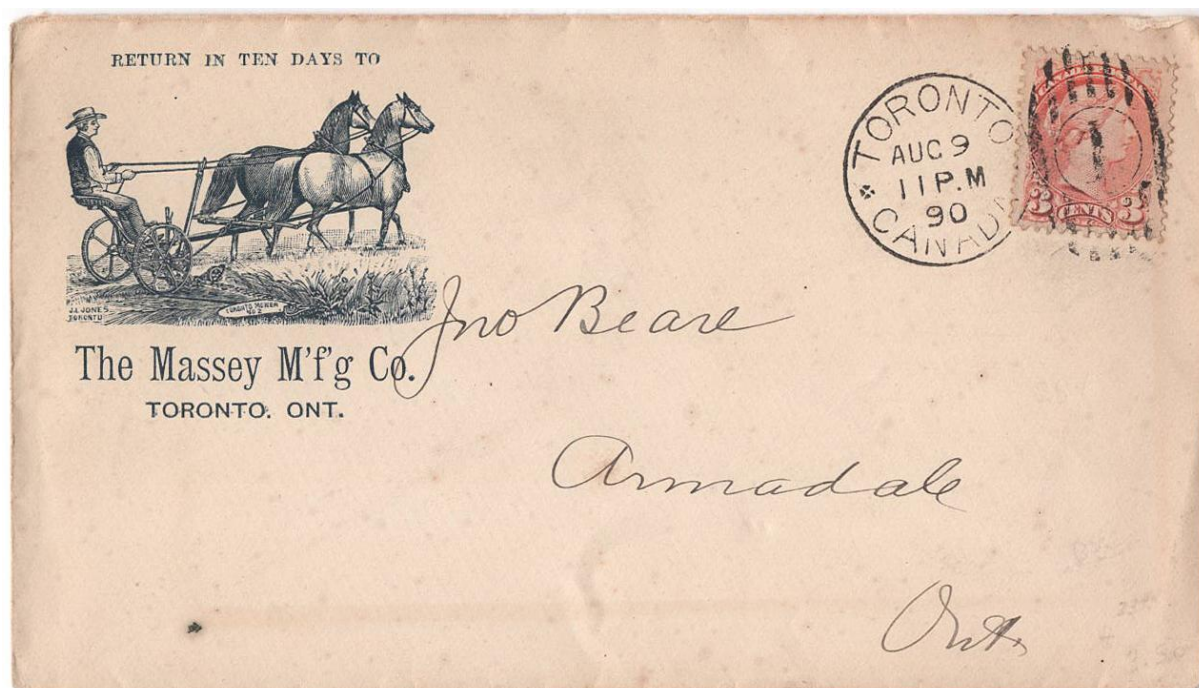 RETURN IN TEN DAYS TO
J.L. JONES
TORONTO
TORONTO MOWER
No 2
The Massey M'f'g Co.
TORONTO. ONT.
TORONTO
AUG 9
11 P.M
90
CANADA
3 CENTS 3
Jno Beare
Armadale
Ont